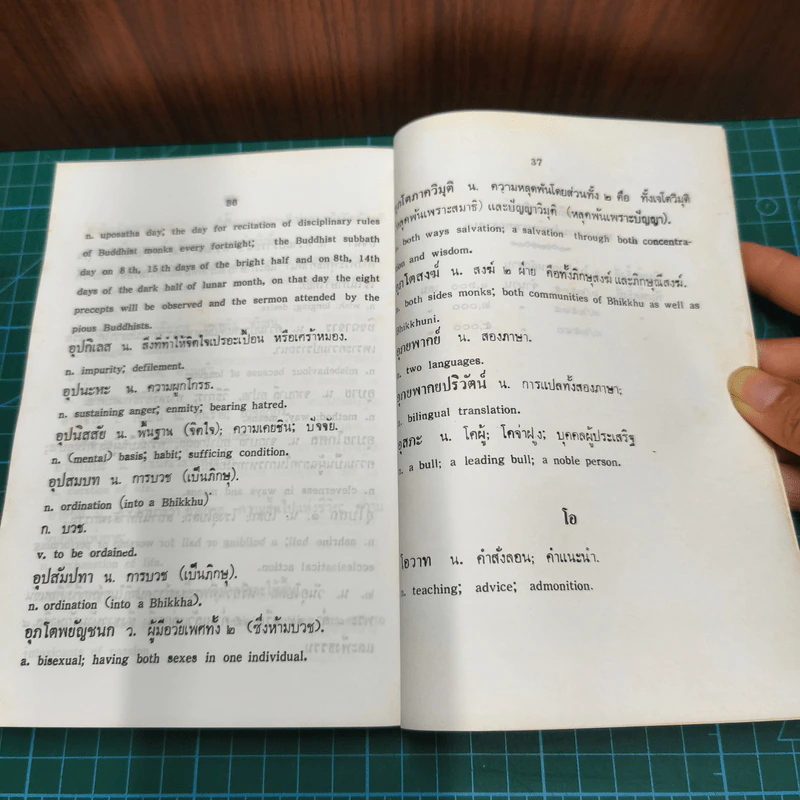 36
n. uposatha day; the day for recitation of disciplinary rules
of Buddhist monks every fortnight; the Buddhist subbath
day on 8 th, 15 th days of the bright half and on 8th, 14th
days of the dark half of lunar month, on that day the eight
precepts will be observed and the sermon attended by the
pious Buddhists.
อุปกิเลส น. สิ่งที่ทำให้จิตใจเปรอะเปื้อน หรือเศร้าหมอง.
n. impurity; defilement.
อุปนะหะ น. ความผูกโกรธ.
n. sustaining anger; enmity; bearing hatred.
อุปนิสสัย น. พื้นฐาน (จิตใจ); ความเคยชิน; ปัจจัย.
n. (mental) basis; habit; sufficing condition.
อุปสมบท น. การบวช (เป็นภิกษุ).
n. ordination (into a Bhikkhu)
ก. บวช.
v. to be ordained.
อุปสัมปทา น. การบวช (เป็นภิกษุ).
n. ordination (into a Bhikkha).
อุภโตพยัญชนก ว. ผู้มีอวัยเพศทั้ง ๒ (ซึ่งห้ามบวช).
a. bisexual; having both sexes in one individual.
37
อุภโตภาควิมุติ น. ความหลุดพ้นโดยส่วนทั้ง ๒ คือ ทั้งเจโตวิมุติ
(หลุดพ้นเพราะสมาธิ) และปัญญาวิมุติ (หลุดพ้นเพราะปัญญา).
both ways salvation; a salvation through both concentra-
and wisdom.
อุภโตสงฆ์ น. สงฆ์ ๒ ฝ่าย คือทั้งภิกษุสงฆ์ และภิกษุณีสงฆ์.
both sides monks; both communities of Bhikkhu as well as
Bhikkhuni.
อุภยพากย์ น. สองภาษา.
n. two languages.
อุภยพากยปริวัตน์ น. การแปลทั้งสองภาษา;
bilingual translation.
อุสภะ น. โคผู้; โคจ่าฝูง; บุคคลผู้ประเสริฐ
n. a bull; a leading bull; a noble person.
โอ
โอวาท น. คำสั่งสอน; คำแนะนำ.
n. teaching; advice; admonition.